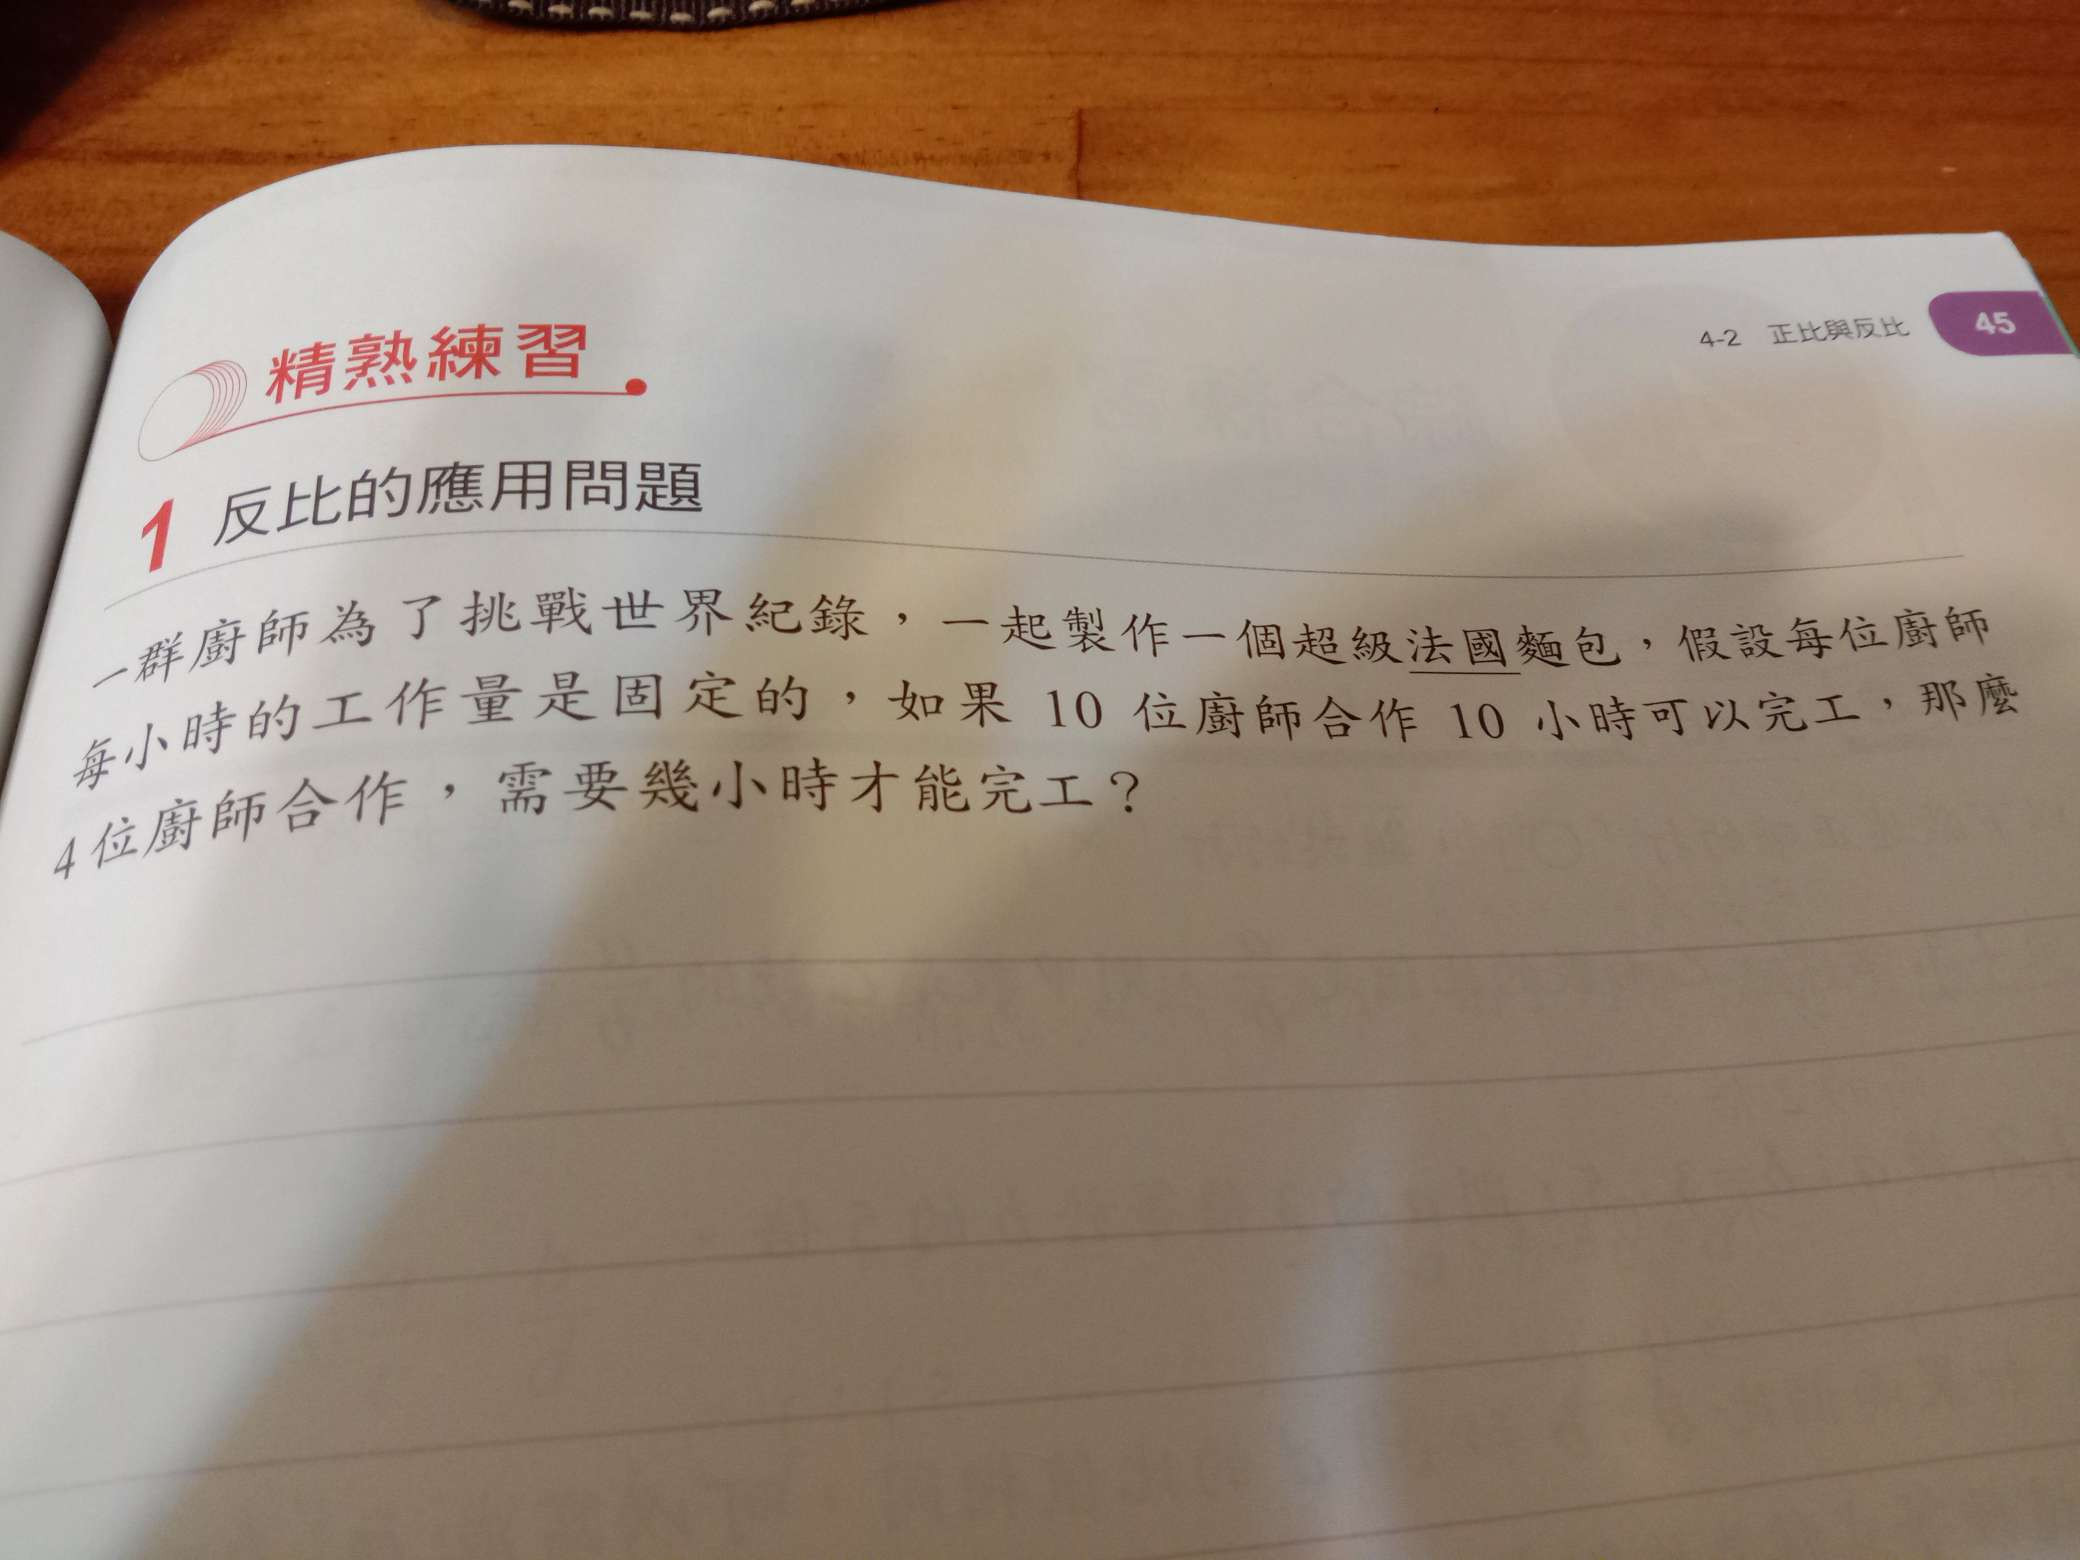 4-2 正比與反比 45
精熟練習
1 反比的應用問題
一群廚師為了挑戰世界紀錄，一起製作一個超級法國麵包，假設每位廚師
每小時的工作量是固定的，如果 10 位廚師合作 10 小時可以完工，那麼
4 位廚師合作，需要幾小時才能完工？